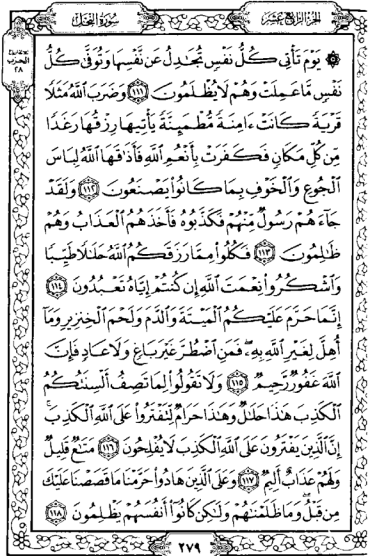 الجزء الرابع عشر
سورة النحل
۞ يَوْمَ تَأْتِى كُلُّ نَفْسٍ تُجَٰدِلُ عَن نَّفْسِهَا وَتُوَفَّىٰ كُلُّ
نَفْسٍ مَّا عَمِلَتْ وَهُمْ لَا يُظْلَمُونَ ١١١ وَضَرَبَ ٱللَّهُ مَثَلًا
قَرْيَةً كَانَتْ ءَامِنَةً مُّطْمَئِنَّةً يَأْتِيهَا رِزْقُهَا رَغَدًا
مِّن كُلِّ مَكَانٍ فَكَفَرَتْ بِأَنْعُمِ ٱللَّهِ فَأَذَٰقَهَا ٱللَّهُ لِبَاسَ
ٱلْجُوعِ وَٱلْخَوْفِ بِمَا كَانُوا۟ يَصْنَعُونَ ١١٢ وَلَقَدْ
جَآءَهُمْ رَسُولٌ مِّنْهُمْ فَكَذَّبُوهُ فَأَخَذَهُمُ ٱلْعَذَابُ وَهُمْ
ظَٰلِمُونَ ١١٣ فَكُلُوا۟ مِمَّا رَزَقَكُمُ ٱللَّهُ حَلَٰلًا طَيِّبًا
وَٱشْكُرُوا۟ نِعْمَتَ ٱللَّهِ إِن كُنتُمْ إِيَّاهُ تَعْبُدُونَ ١١٤
إِنَّمَا حَرَّمَ عَلَيْكُمُ ٱلْمَيْتَةَ وَٱلدَّمَ وَلَحْمَ ٱلْخِنزِيرِ وَمَآ
أُهِلَّ لِغَيْرِ ٱللَّهِ بِهِۦ فَمَنِ ٱضْطُرَّ غَيْرَ بَاغٍ وَلَا عَادٍ فَإِنَّ
ٱللَّهَ غَفُورٌ رَّحِيمٌ ١١٥ وَلَا تَقُولُوا۟ لِمَا تَصِفُ أَلْسِنَتُكُمُ
ٱلْكَذِبَ هَٰذَا حَلَٰلٌ وَهَٰذَا حَرَامٌ لِّتَفْتَرُوا۟ عَلَى ٱللَّهِ ٱلْكَذِبَ
إِنَّ ٱلَّذِينَ يَفْتَرُونَ عَلَى ٱللَّهِ ٱلْكَذِبَ لَا يُفْلِحُونَ ١١٦ مَتَٰعٌ قَلِيلٌ
وَلَهُمْ عَذَابٌ أَلِيمٌ ١١٧ وَعَلَى ٱلَّذِينَ هَادُوا۟ حَرَّمْنَا مَا قَصَصْنَا عَلَيْكَ
مِن قَبْلُ وَمَا ظَلَمْنَٰهُمْ وَلَٰكِن كَانُوٓا۟ أَنفُسَهُمْ يَظْلِمُونَ ١١٨
الحزب
٢٨
٢٧٩